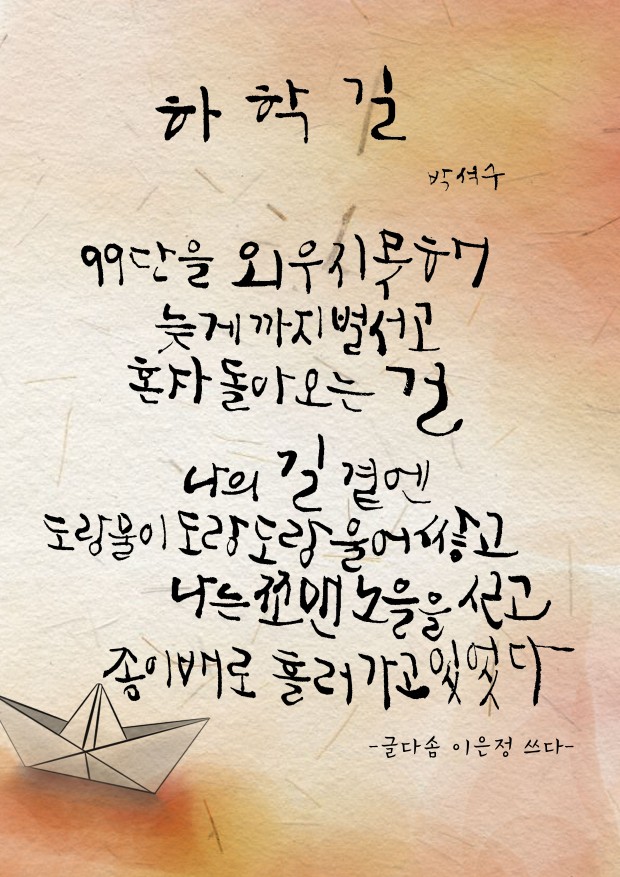 하학길
박석구
99단을 외우지못해
늦게까지벌서고
혼자 돌아오는 길
나의 길 곁엔
도랑물이 도랑도랑 울어쌓고
나는 쪼맨 노을을 싣고
종이배로 흘러가고있었다
-글다솜 이은정 쓰다-